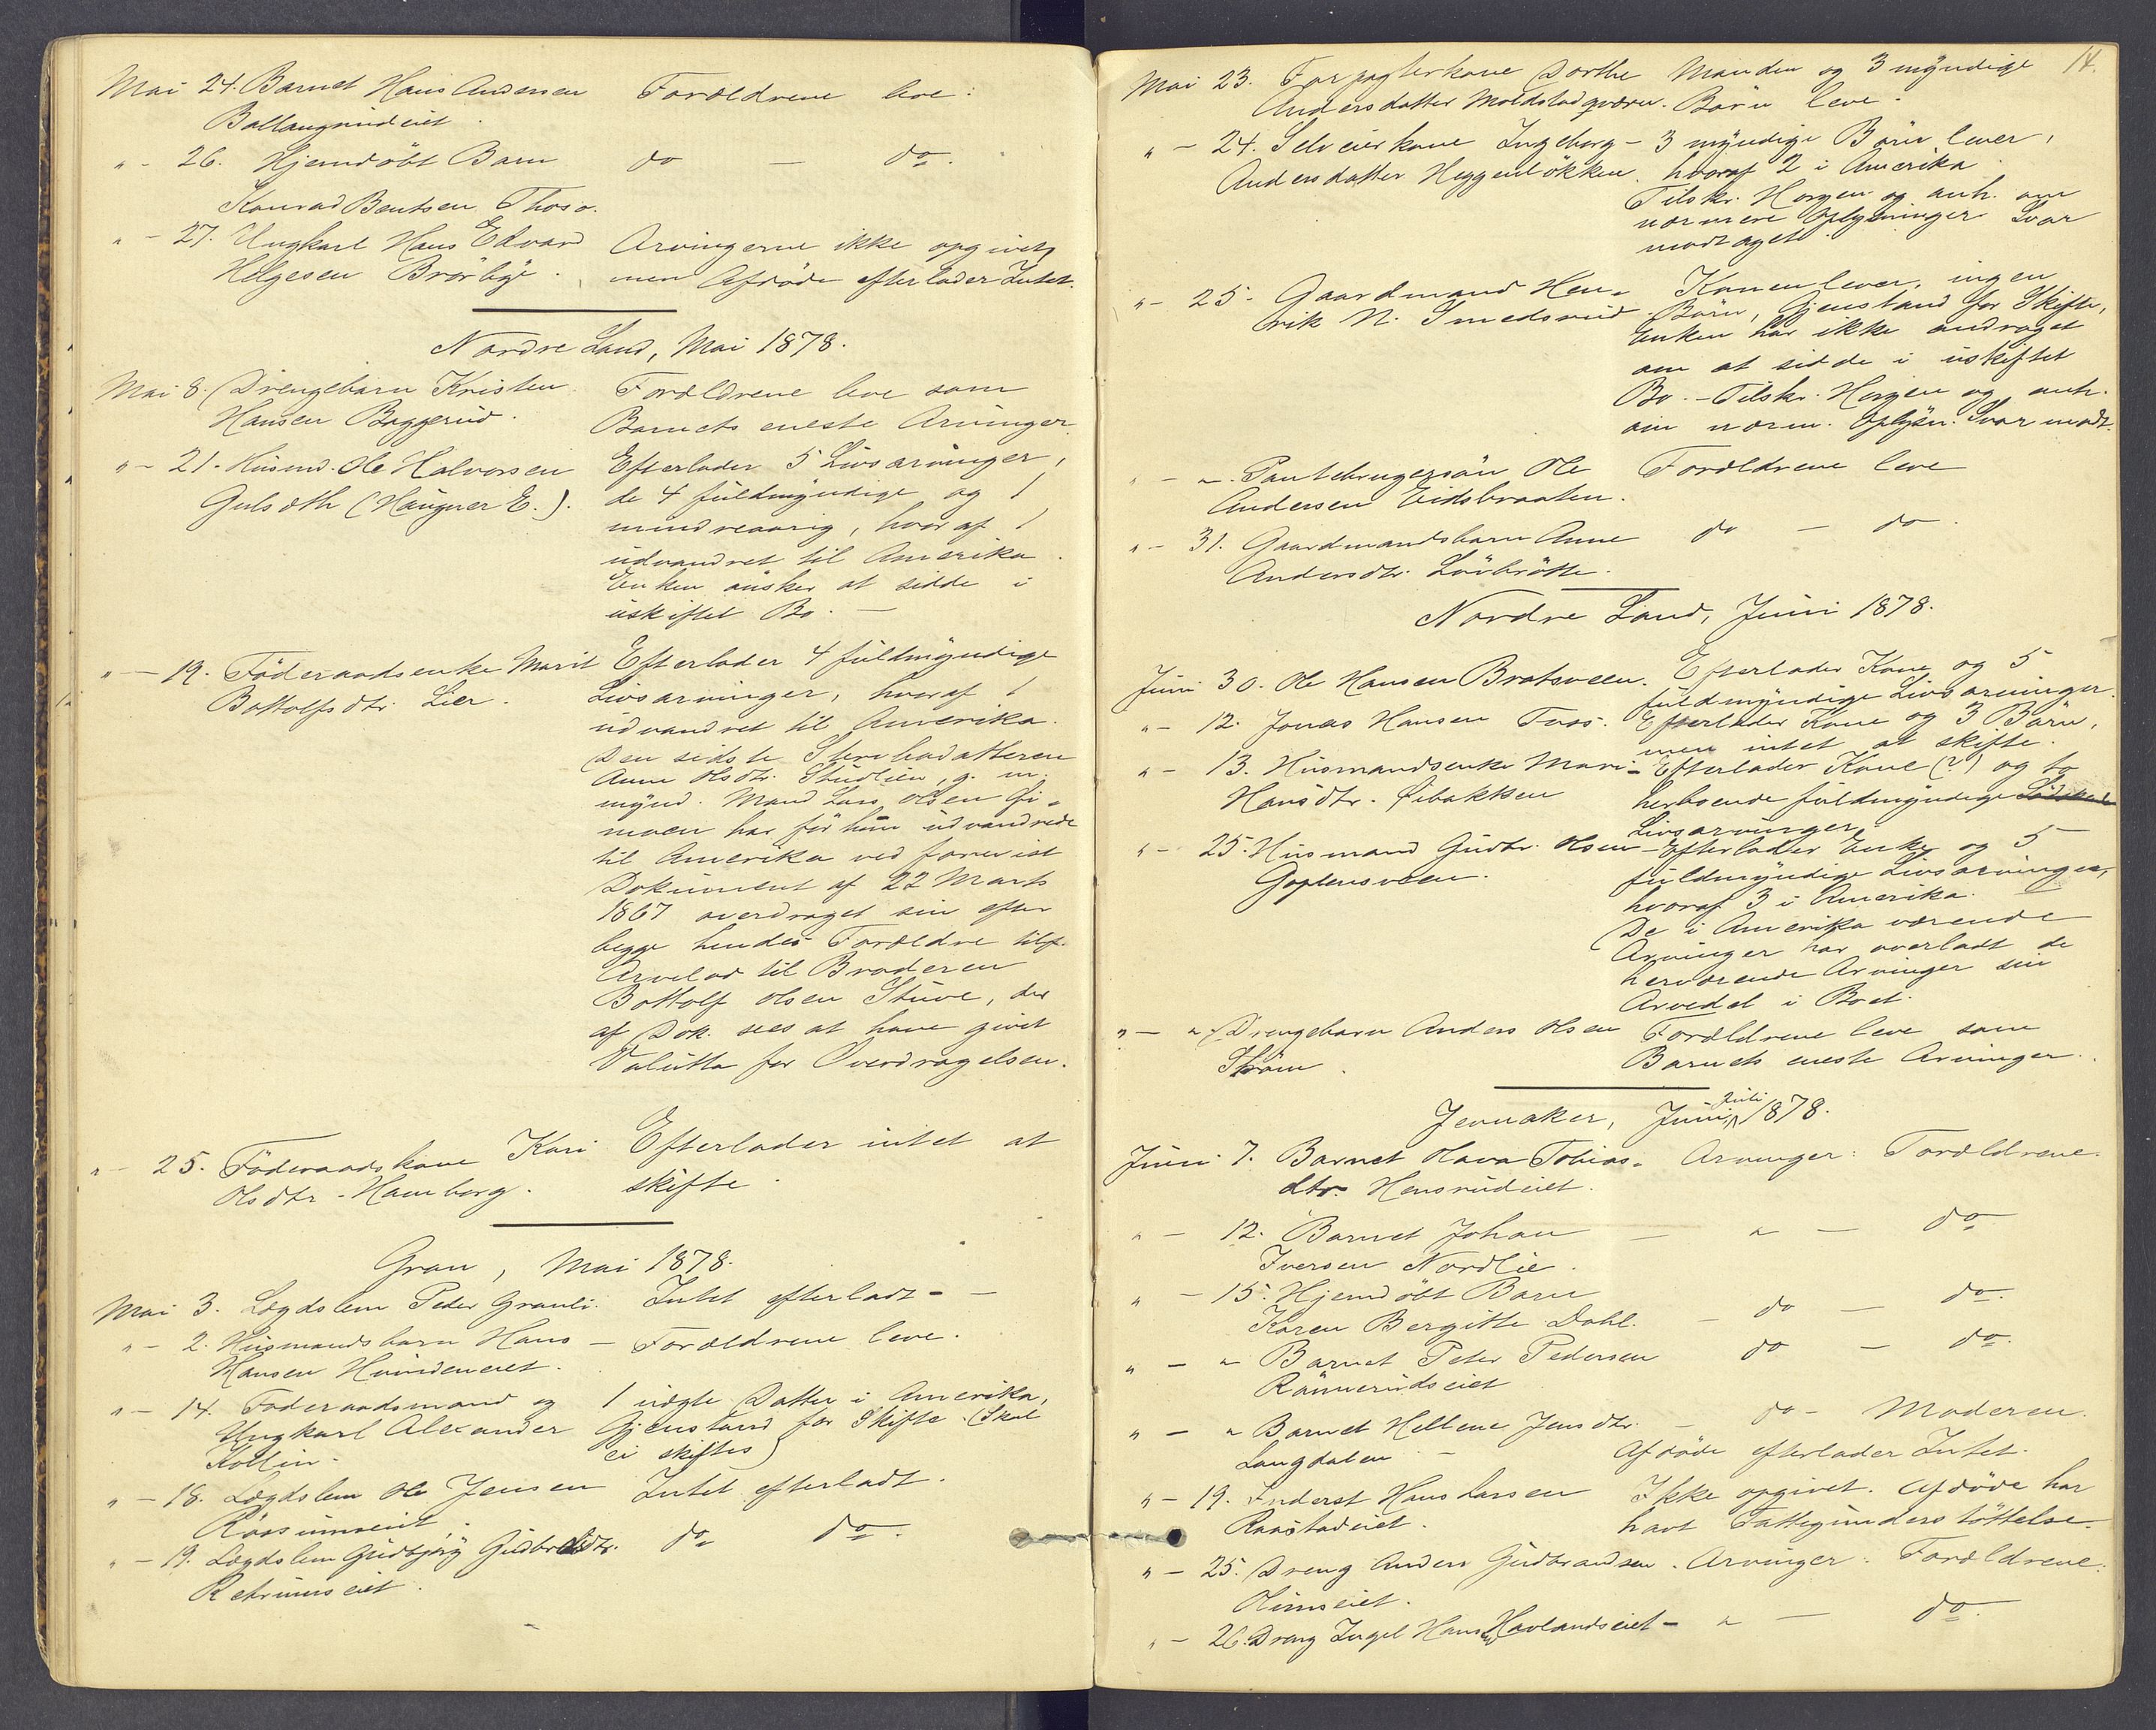 Mai 24. Barnet Hans Andersen Forældrene leve.
Ballangrudeiet.
" - 26. Hjemdöbt Barn do — do.
Konrad Bentsen Thoso.
" - 27. Ungkarl Hans Edvard Arvingerne ikke opgivet,
Helgesen Brørbye. men Afdöde efterlader Intet.
Nordre Land, Mai 1878.
Mai 8. Drengebarn Kristen Forældrene leve som
Hansen Baggerud. Barnets eneste Arvinger.
" - 21. Husmd. Ole Halvorsen Efterlader 5 Livsarvinger,
Gulsdth (Haugner E.). de 4 fuldmyndige og 1
mindreaarig, hvoraf 1
udvandret til Amerika.
Enken önsker at sidde i
uskiftet Bo. —
" — 19. Föderaadsenke Marit Efterlader 4 fuldmyndige
Bottolfsdtr. Lier. Livsarvinger, hvoraf 1
udvandret til Amerika.
Den sidste Stervbodatteren
Anne Olsdtr. Studlien, g. m.
mynd. Mand Lars Olsen
moen har för hun udvandrede
til Amerika ved forevist
Dokument af 22 Marts
1867 overdraget sin efter
begge hendes Forældre tilf.
Arvelod til Broderen
Bottolf Olsen Stuve, der
af Dok. sees at have givet
Valutta for Overdragelsen.
" - 25. Föderaadskone Kari Efterlader intet at
Olsdtr - Hamborg. skifte.
Gran, Mai 1878.
Mai 3. Lægdslem Peder Granli. Intet efterladt - -
" - 2. Husmandsbarn Hans - Forældrene leve.
Hansen Hvindeneiet.
" - 14. Föderaadsmand og 1 uægte Datter i Amerika,
Ungkarl Alexander Gjenstand for Skifte. (Skal
Kollin - ei skiftes)
" - 18. Lægdslem Ole Jensen Intet efterladt.
Rössumseiet.
" - 19. Lægdslem Gudbjörg Gudbrdsdtr. do do.
Retrumseiet.
14.
Mai 23. Forpagterkone Dorthe Manden og 3 myndige
Andersdatter Moldstadqværn. Börn leve.
" - 24. Selveierkone Ingeborg - 3 myndige Börn lever,
Andersdatter Heggenlökken. hvoraf 2 i Amerika
Tilskr. Horgen og anh. om
nærmere Oplysninger Svar
modtaget.
" - 25 - Gaardmand Hen- Konen lever, ingen
rik N. Smedsrud. Börn, Gjenstand for Skifte,
Enken har ikke andraget
om at sidde i uskiftet
Bo. - Tilskr. Horgen og anh.
om nærm. Oplysn. Svar modt.
" - " - Pantebrugersön Ole Forældrene leve
Andersen Eidsbraaten.
" - 31. Gaardmandsbarn Anne do — do.
Andersdtr. Lövbråtte.
Nordre Land, Juni 1878.
Juni 30. Ole Hansen Bratsveen. Efterlader Kone og 5
fuldmyndige Livsarvinger.
" - 12. Jonas Hansen Toso. Efterlader Kone og 3 Börn,
men intet at skifte.
" - 13. Husmandsenke Mari - Efterlader Kone (?) og to
Hansdtr. Øibakken herboende fuldmyndige
Livsarvinger.
" - 25. Husmand Gudbr. Olsen - Efterlader Enke og 5
Goplensveen. fuldmyndige Livsarvinger,
hvoraf 3 i Amerika.
De i Amerika værende
Arvinger har overladt de
herværende Arvinger sin
Arvedel i Boet.
" — " Drengebarn Anders Olsen Forældrene leve som
Ström. Barnets eneste Arvinger.
Jevnaker, Juni, Juli 1878.
Juni 7. Barnet Olava Tobias- Arvinger: Forældrene.
dtr. Hensrudeiet.
" - 12. Barnet Johan — " — do
Iversen Nordlie.
" - 15. Hjemdöbt Barn
Karen Bergitte Dahl. - do — do.
" - " Barnet Peter Pedersen do — do.
Rönnerudseiet
" - " Barnet Hellene Jensdtr. - do - Moderen.
Langdalen - Afdöde efterlader Intet.
" - 19. Inderst Hans Larsen Ikke opgivet. Afdöde har
Raastadeiet. havt Fattigunderstöttelse.
" - 25. Dreng Anders Gudbrandsen. Arvinger: Forældrene.
Olimseiet.
" - 26. Dreng Ingel Hans Havlandseiet - " — do.